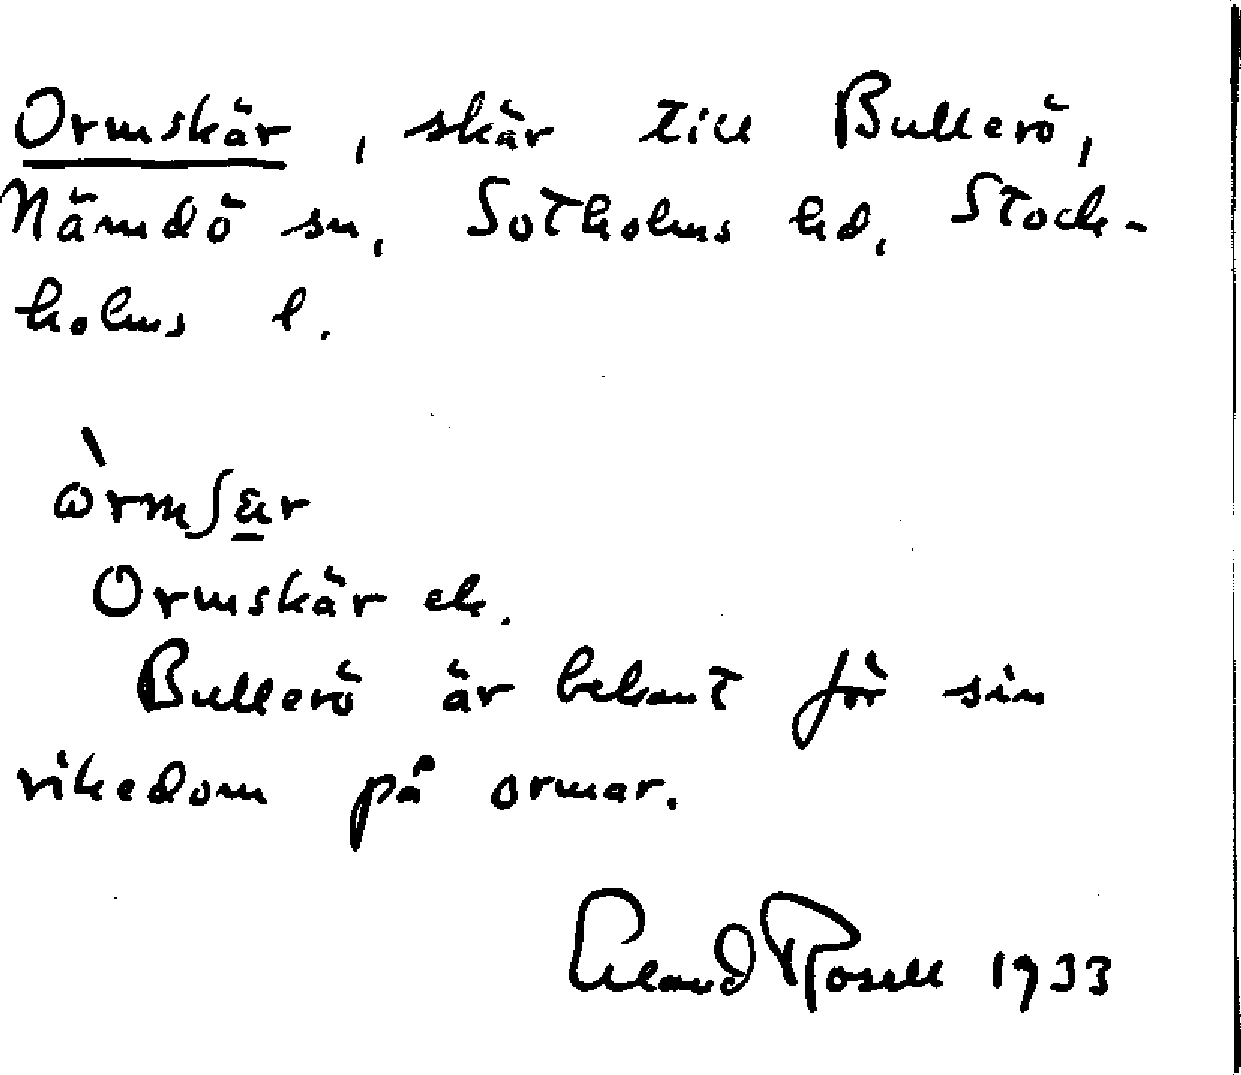 Ormskär, skär till Bullerö,
Nämdö sn, Sotholms hd, Stock-
holms l.
Ormskär ek.
Bullerö är bekant för sin
rikedom på ormar.
Erland Rosell 1933